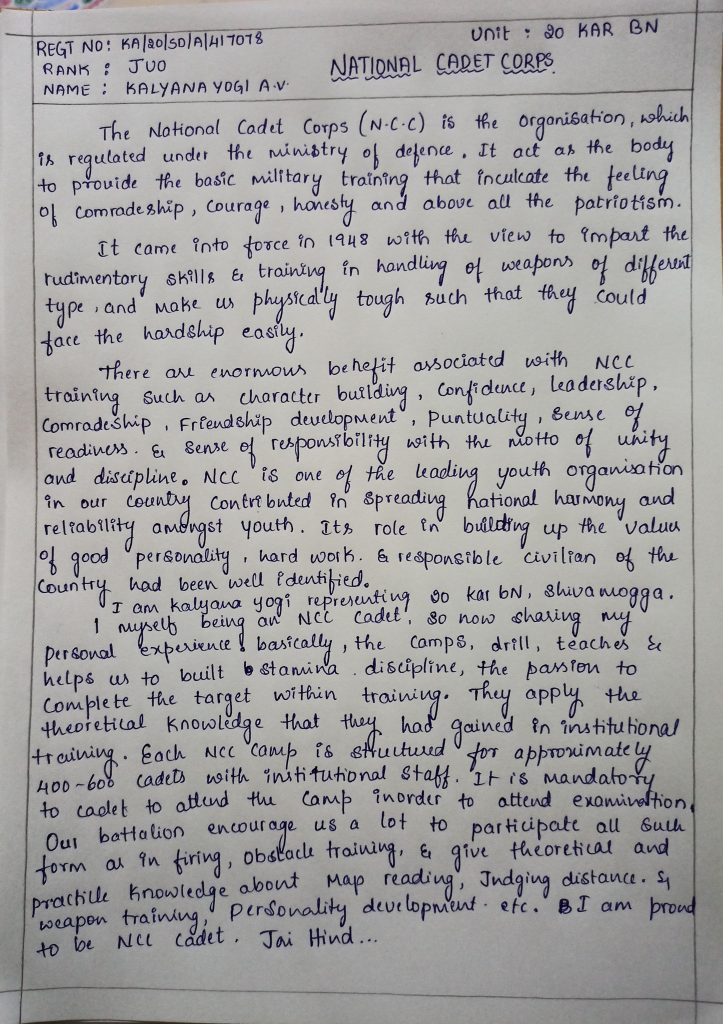 REGT NO: KA/20/SD/A/417078
Unit : 20 KAR BN
RANK : JUO
NATIONAL CADET CORPS
NAME : KALYANA YOGI A.V.
The National Cadet Corps (N.C.C) is the organisation, which
is regulated under the ministry of defence. It act as the body
to provide the basic military training that inculcate the feeling
of comradeship, courage, honesty and above all the patriotism.
It came into force in 1948 with the view to impart the
rudimentory skills & training in handling of weapons of different
type, and make us physically tough such that they could
face the hardship easily.
There are enormous benefit associated with NCC
training such as character building, Confidence, leadership,
Comradeship, Friendship development, Puntuality, Sense of
readiness. & Sense of responsibility with the motto of unity
and discipline. NCC is one of the leading youth organisation
in our country contributed in spreading national harmony and
reliability amongst youth. Its role in building up the values
of good personality, hard work. & responsible civilian of the
Country had been well identified.
I am kalyana yogi representing 20 kar bN, Shivamogga.
I myself being an NCC Cadet, so now sharing my
Personal experience basically, the camps, drill, teaches &
helps us to built stamina. discipline, the passion to
Complete the target within training. They apply the
theoretical Knowledge that they had gained in institutional
training. Each NCC camp is structured for approximately
400-600 cadets with institutional staff. It is mandatory
to cadet to attend the camp inorder to attend examination.
Our battalion encourage us a lot to participate all such
form as in firing, obstacle training, & give theoretical and
practicle knowledge about Map reading, Judging distance. &
weapon training, Personality development. etc. I am proud
to be NCC Cadet. Jai Hind...